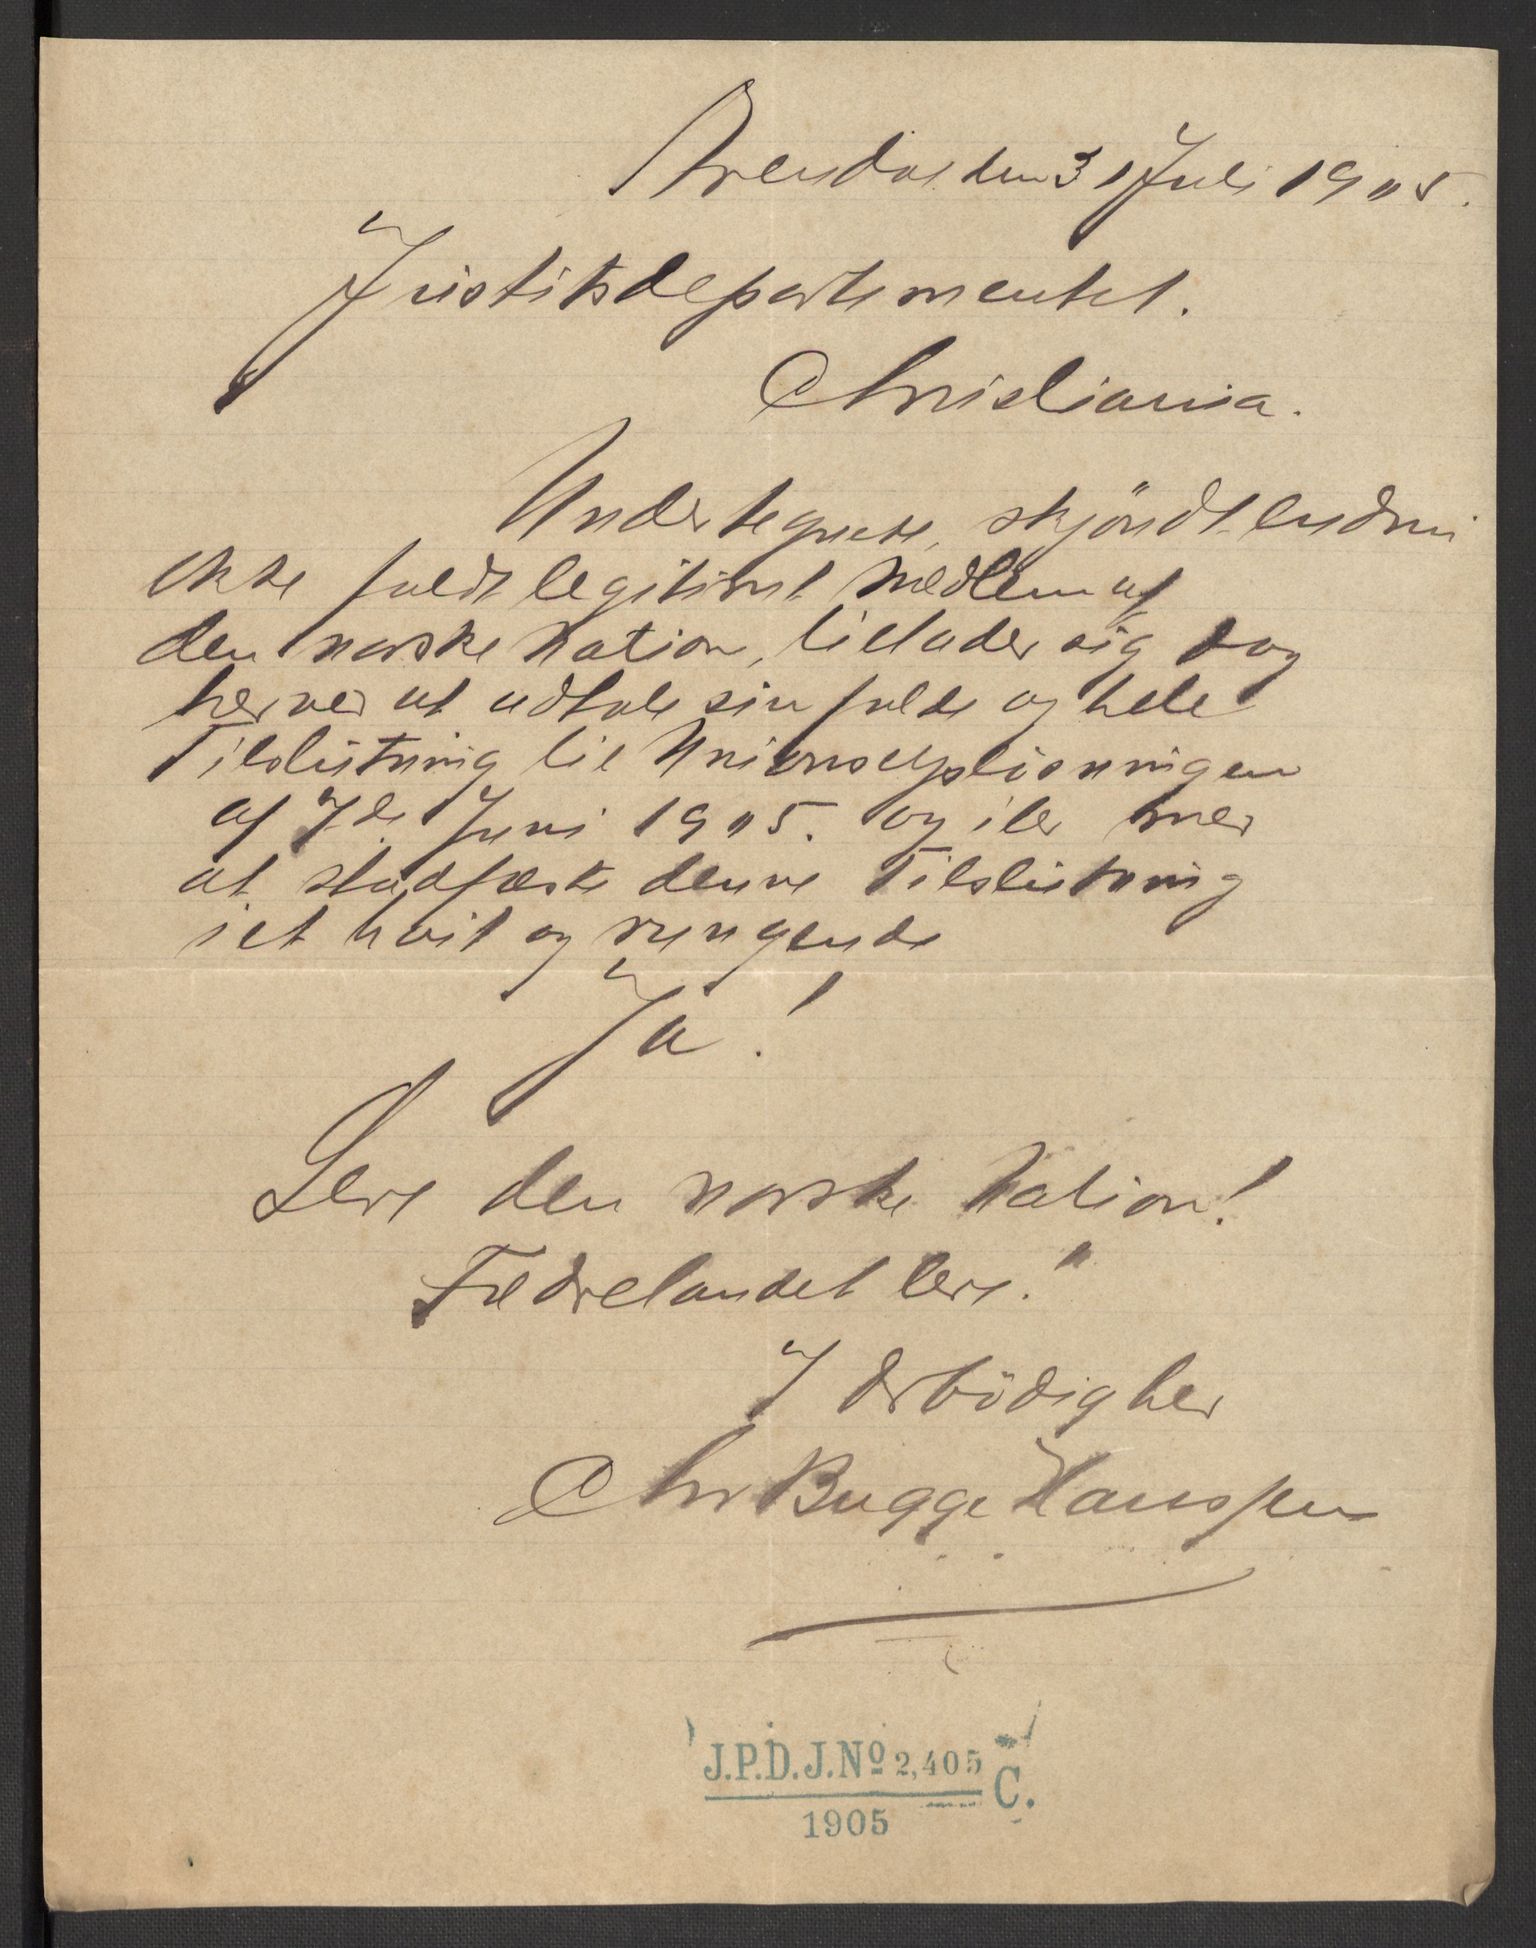 Arendal den 31 Juli 19"5.
Justitsdepartementet.
Christiania.
Undertegnede, skjöndt endnu
ikke fuldt legitimt Medlem af
den norske Nation, tillader sig dog
herved at udtale sin fulde og hele
Tilslutning til Unionsopløsningen
af 7de Juni 19"5. og iler med
at stadfæste denne Tilslutning
i et høit og rungende
Ja!
Leve den norske Nation!
Fædrelandet leve!"
I Ærbödighed
Chr Bugge Hanssen
J.P.D.J.Nº 2,405 C.
1905